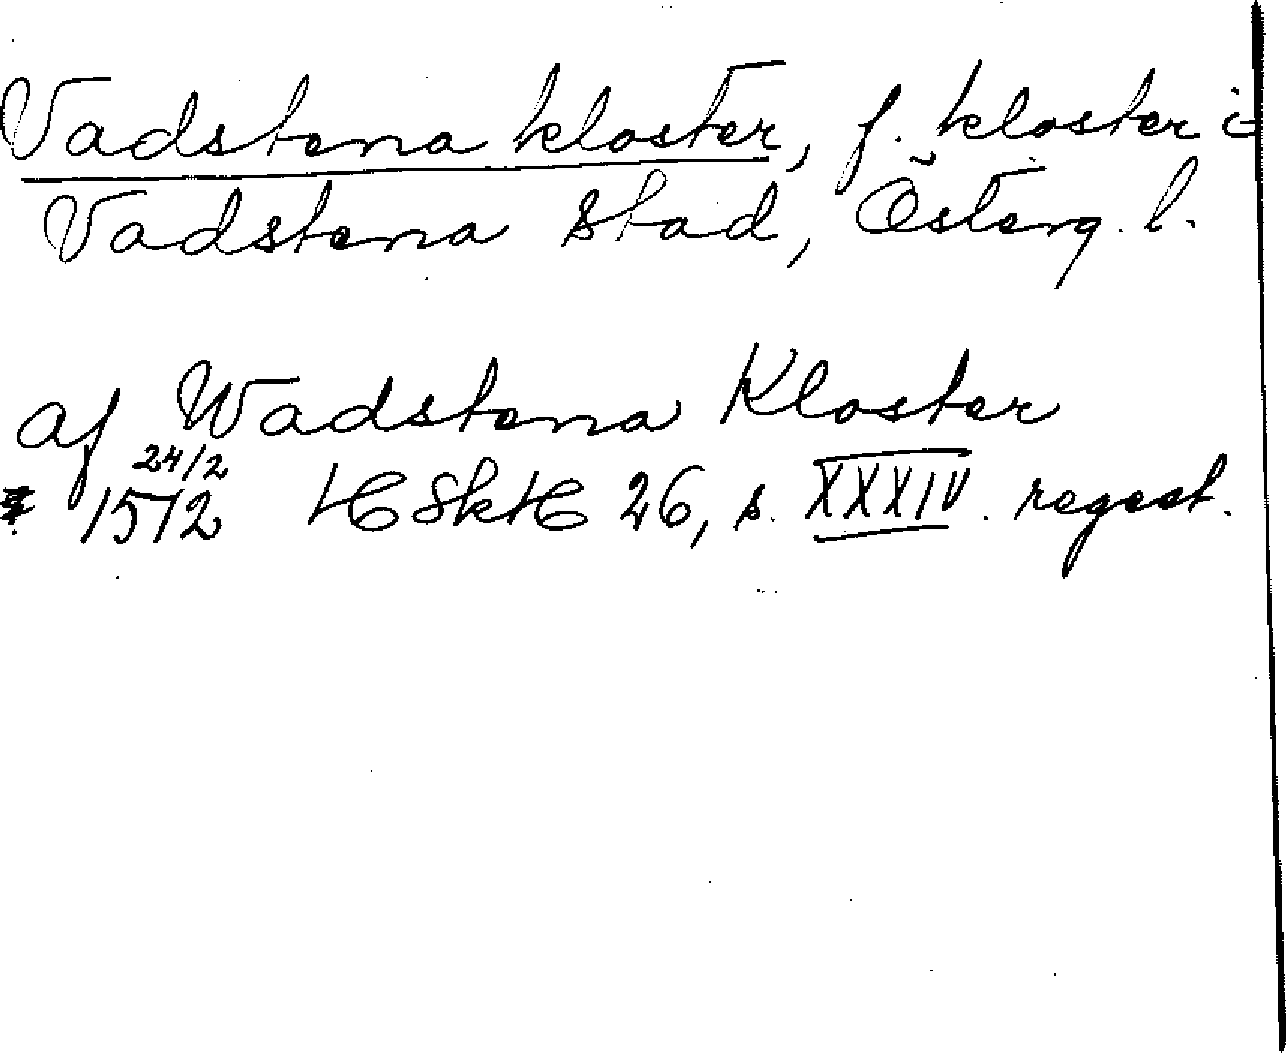 Vadstena kloster, f. kloster i
Vadstena stad, Österg. l.
af Wadstena Kloster
24/2
* 1572 HSkH 26, s. XXXIV. regest.